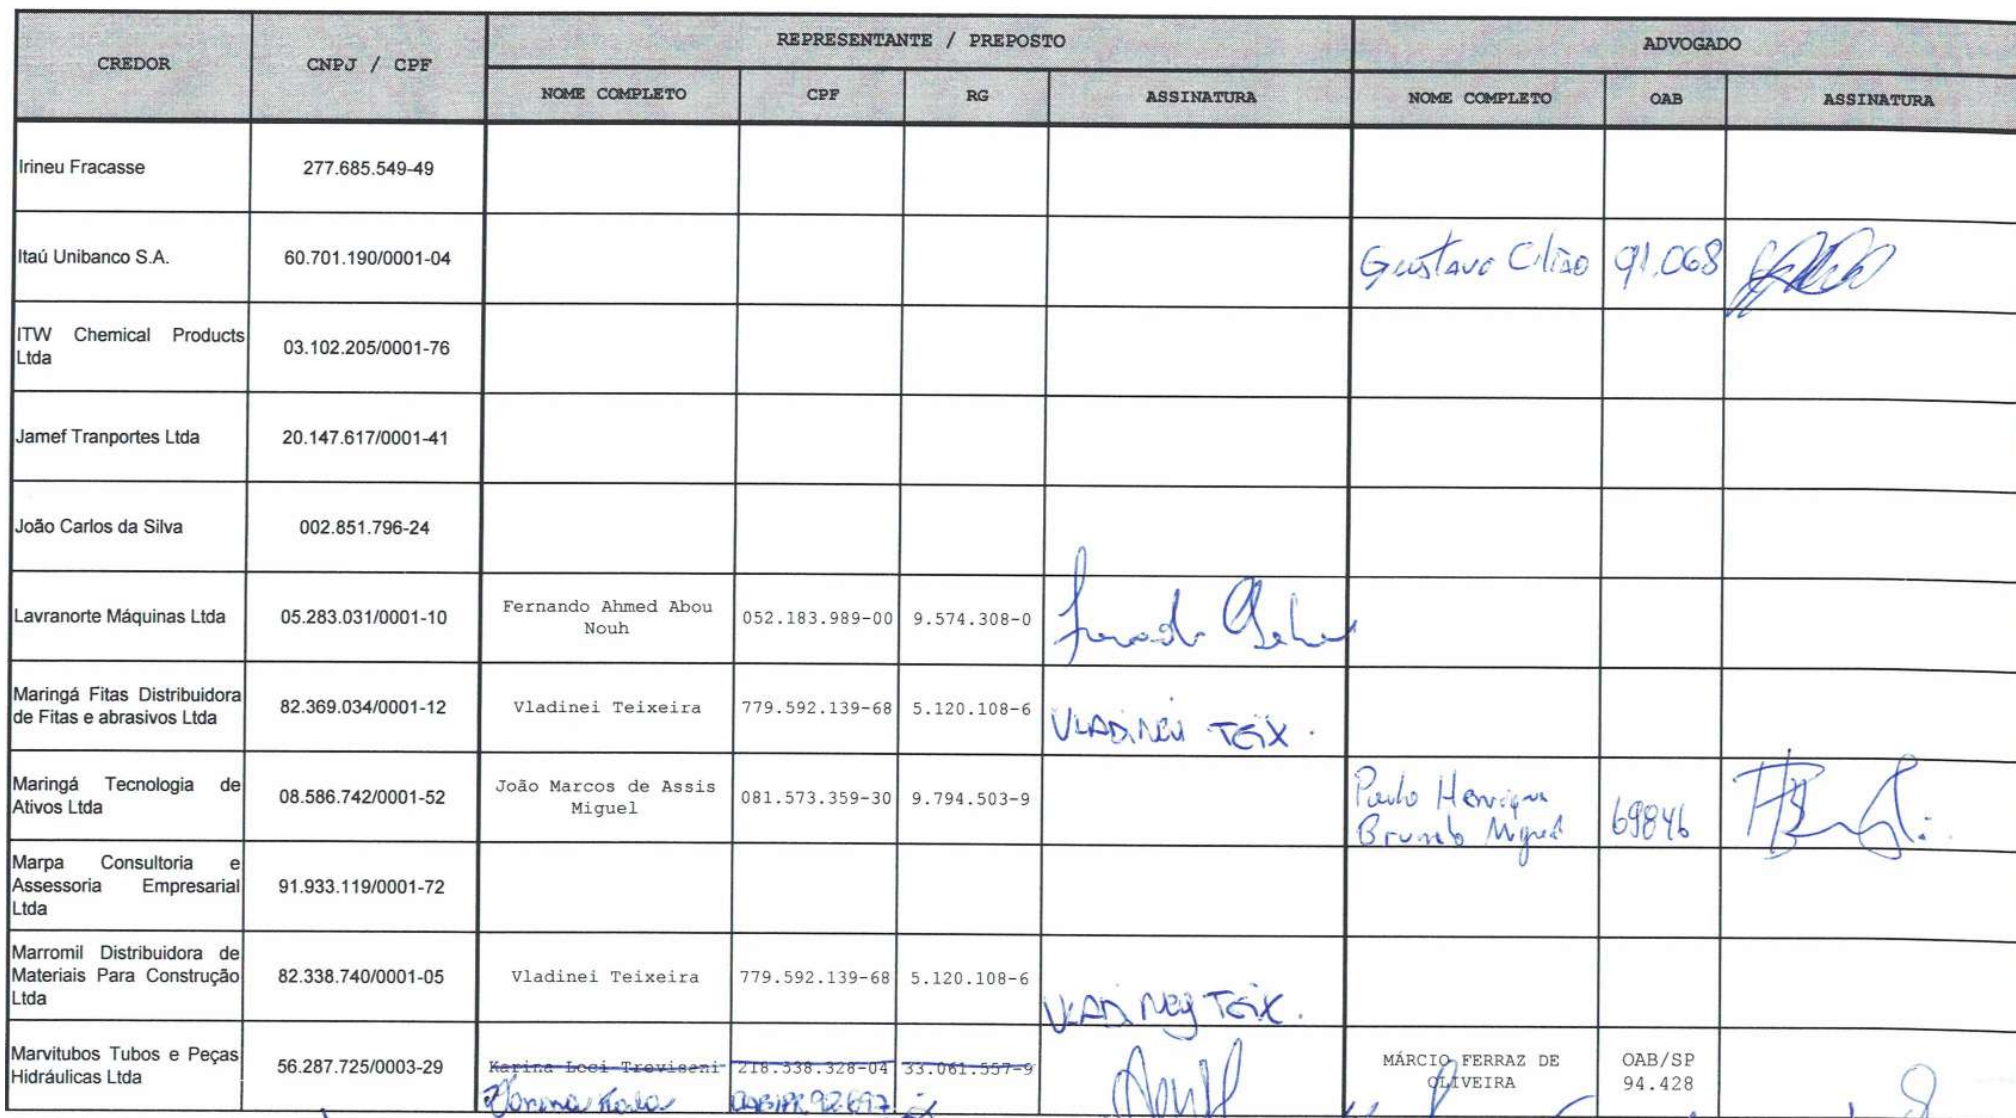 CREDOR
CNPJ / CPF
REPRESENTANTE / PREPOSTO
ADVOGADO
NOME COMPLETO
CPF
RG
ASSINATURA
NOME COMPLETO
OAB
ASSINATURA
Irineu Fracasse
277.685.549-49
Itaú Unibanco S.A.
60.701.190/0001-04
Gustavo Cilião
91.068
ITW Chemical Products
Ltda
03.102.205/0001-76
Jamef Tranportes Ltda
20.147.617/0001-41
João Carlos da Silva
002.851.796-24
Lavranorte Máquinas Ltda
05.283.031/0001-10
Fernando Ahmed Abou
Nouh
052.183.989-00
9.574.308-0
Maringá Fitas Distribuidora
de Fitas e abrasivos Ltda
82.369.034/0001-12
Vladinei Teixeira
779.592.139-68
5.120.108-6
VLADINEI TEIX.
Maringá Tecnologia de
Ativos Ltda
08.586.742/0001-52
João Marcos de Assis
Miguel
081.573.359-30
9.794.503-9
Paulo Henrique
Miguel
69846
Marpa Consultoria e
Assessoria Empresarial
Ltda
91.933.119/0001-72
Marromil Distribuidora de
Materiais Para Construção
Ltda
82.338.740/0001-05
Vladinei Teixeira
779.592.139-68
5.120.108-6
VLADINEY TEIX.
Marvitubos Tubos e Peças
Hidráulicas Ltda
56.287.725/0003-29
Karina Loci Treviseni
218.338.328-04
33.061.557-9
OAB/PR 92.697
MÁRCIO FERRAZ DE
OLIVEIRA
OAB/SP
94.428